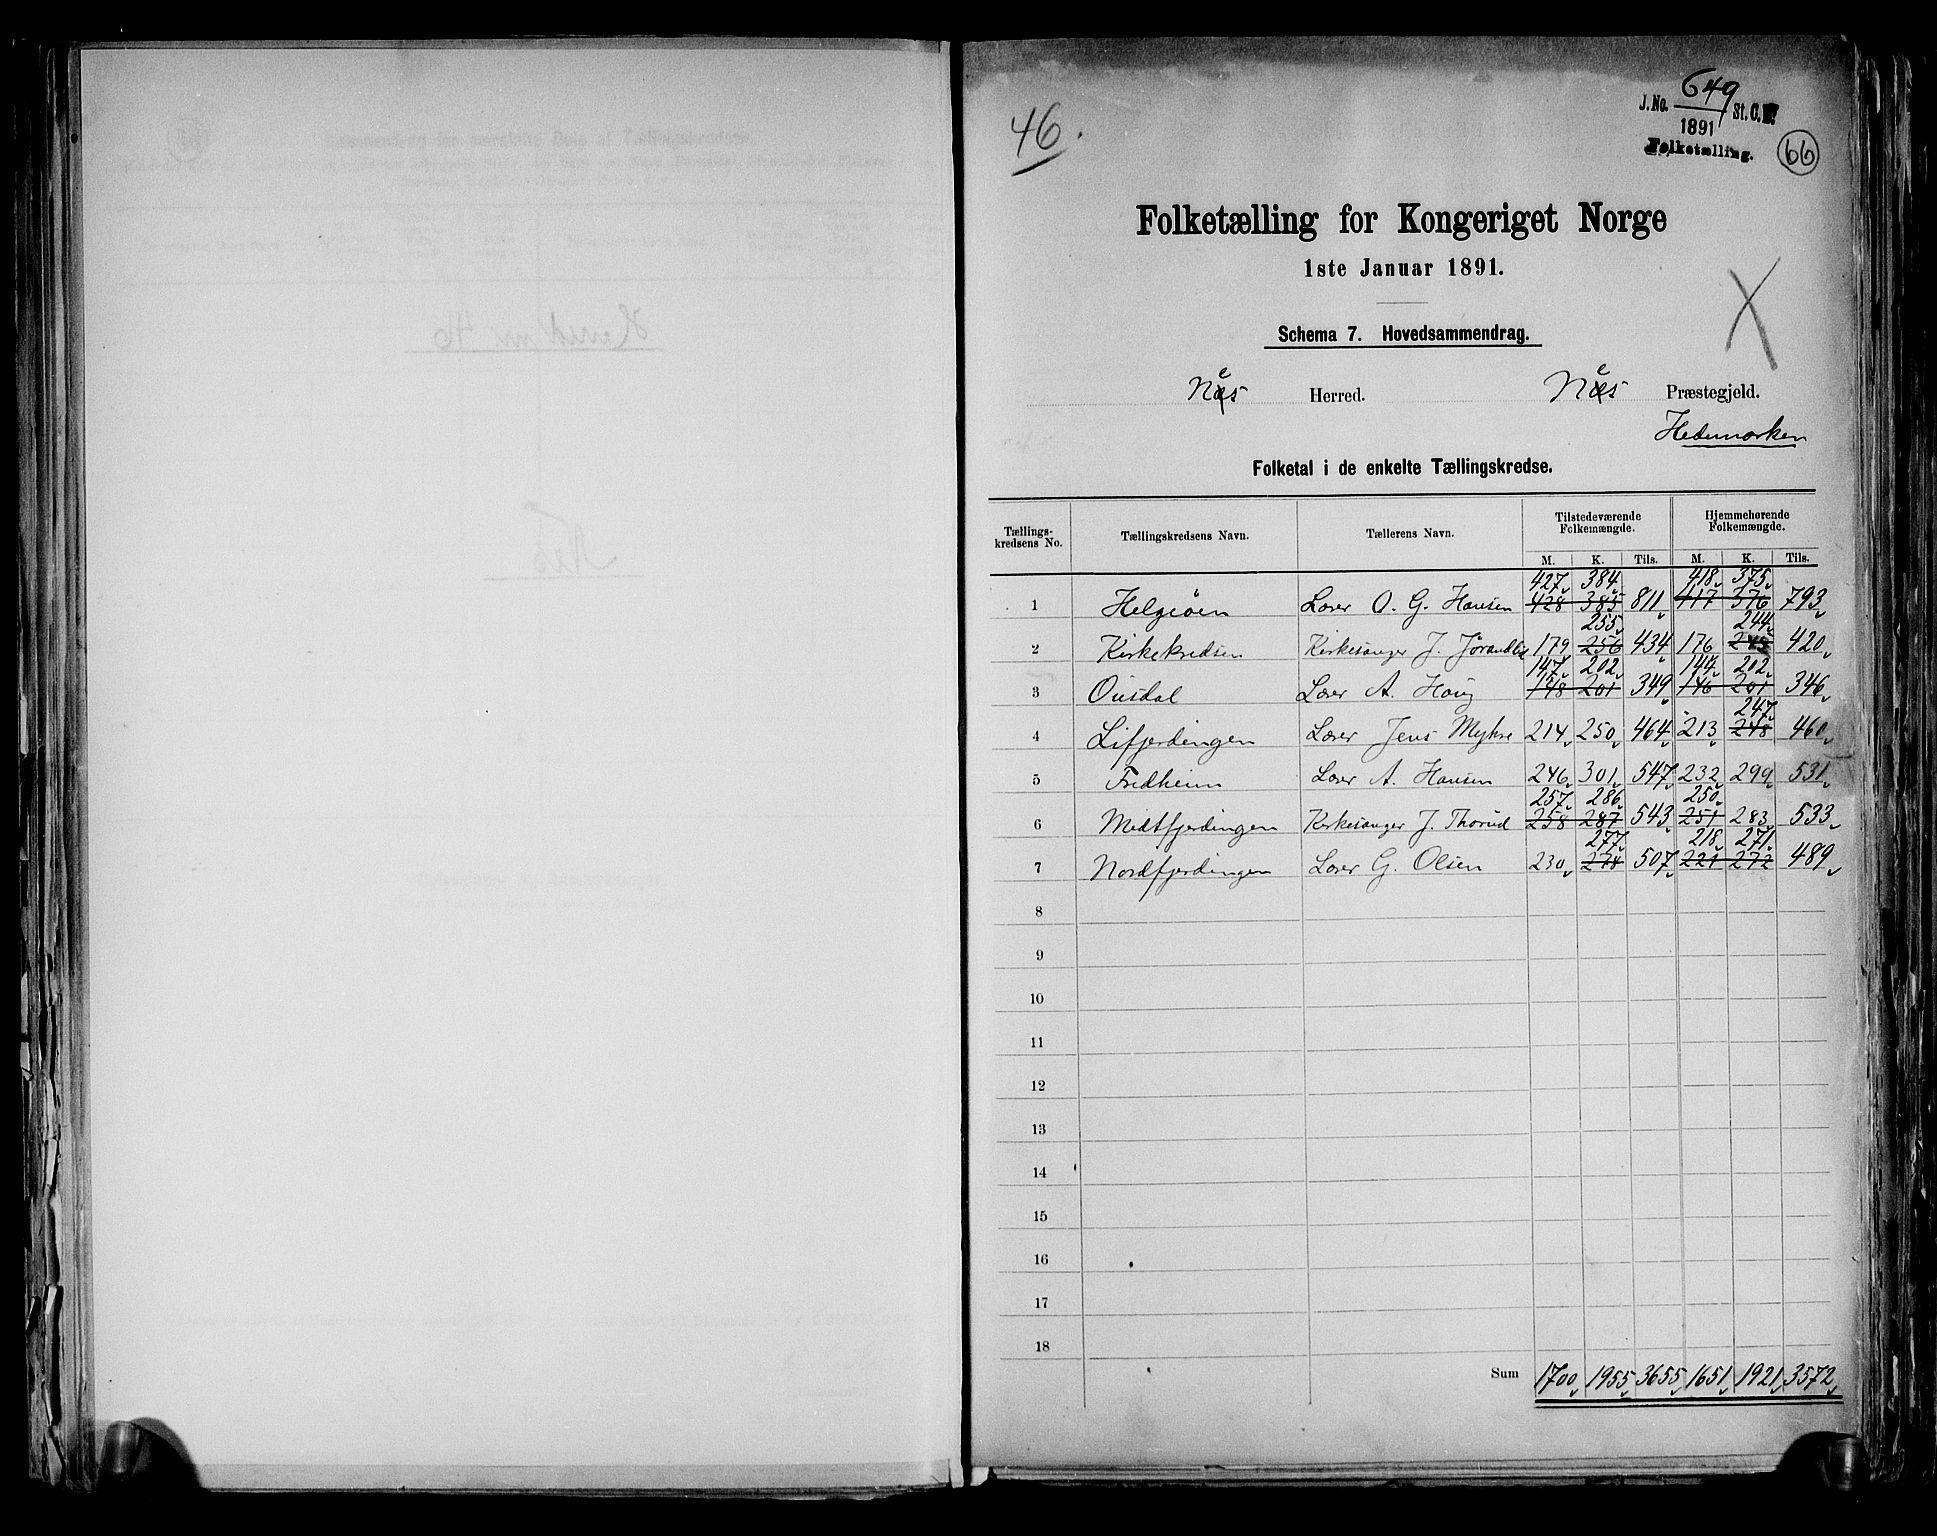 46.
J. No. 649 St. C.B.
1891
Folketælling.
66
Folketælling for Kongeriget Norge
1ste Januar 1891.
Schema 7. Hovedsammendrag.
Næs e Herred. Næs e Præstegjeld.
Hedemarken
Folketal i de enkelte Tællingskredse.
Tællings-kredsens No. Tællingskredsens Navn. Tællerens Navn. Tilstedeværende Folkemængde. Hjemmehørende Folkemængde.
M. K. Tils. M. K. Tils.
427 384 418 375
1 Helgeøen Lærer O. G. Hansen 428 385 811 417 376 793
255 244
2 Kirkekredsen Kirkesanger J. Jørandlid 179 256 434 176 245 420
147 202 144 202
3 Ousdal Lærer A. Haug 148 201 349 146 201 346
247
4 Lifjerdingen Lærer Jens Myhre 214 250 464 213 248 460
5 Fredheim Lærer A. Hansen 246 301 547 232 299 531
257 286 250
6 Midtfjerdingen Kirkesanger J. Thorud 258 287 543 251 283 533
277 218 271
7 Nordfjerdingen Lærer G. Olsen 230 278 507 221 272 489
8
9
10
11
12
13
14
15
16
17
18
Sum 1700 1955 3655 1651 1921 3572